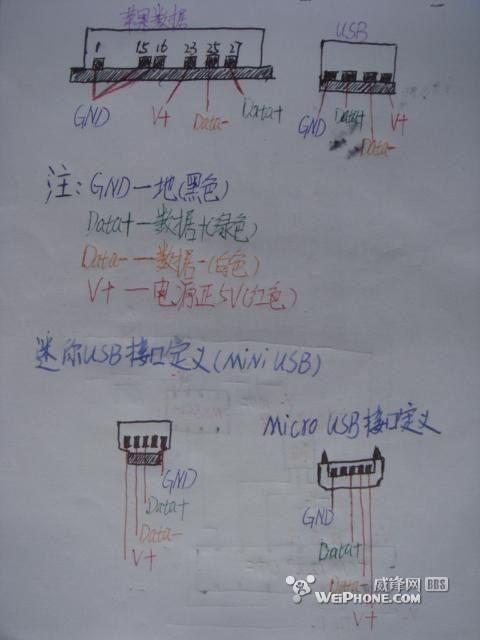 苹果数据
USB
1 15 16 23 25 27
GND V+ Data- Data+
GND Data+ Data- V+
注：GND一地(黑色)
Data+一数据+(绿色)
Data-一数据-(白色)
V+一电源正5V(红色)
迷你USB接口定义(MiNi USB)
Micro USB接口定义
GND
Data+
Data-
V+
GND
Data+
Data-
V+
威锋网 BBS
WEIPHONE.COM